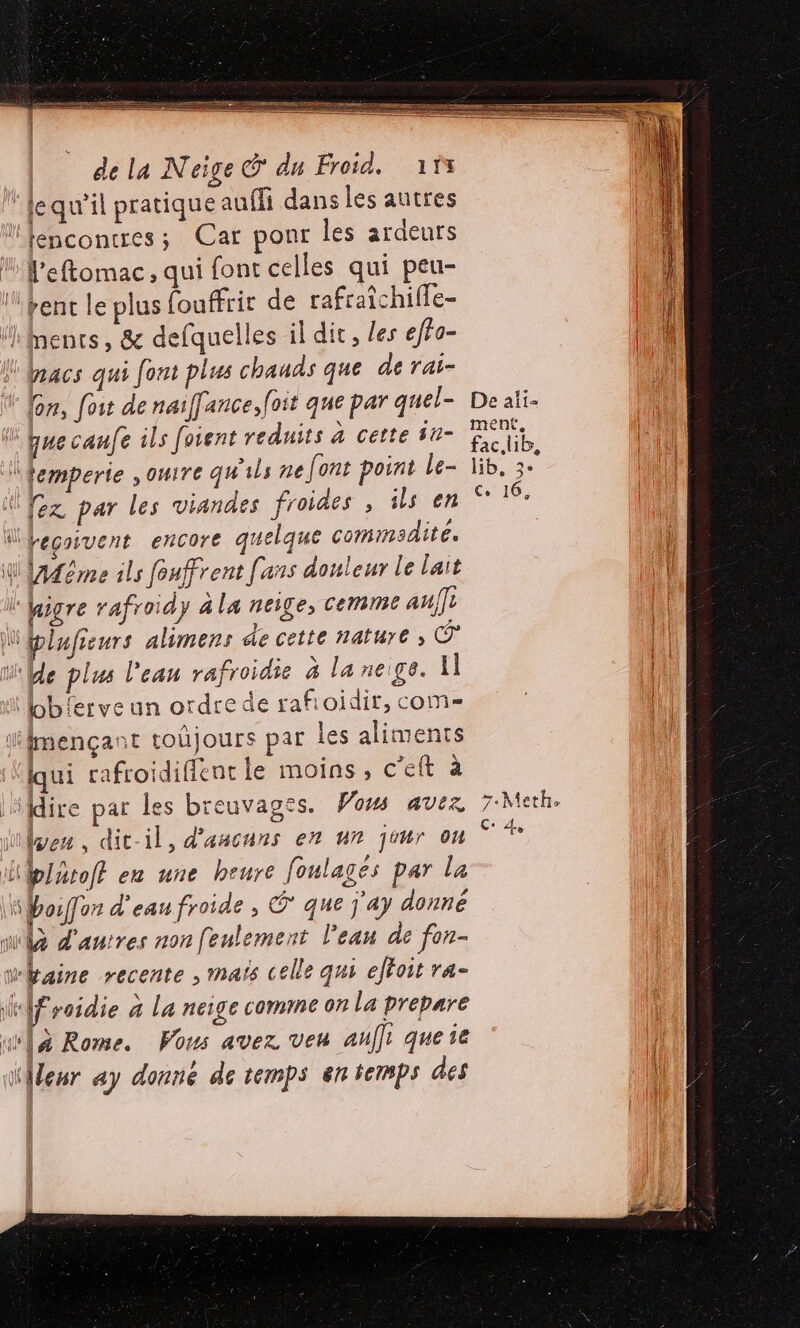 de la Neige & du Froid. 111
le qu'il pratique auſſi dans les autres
rencontres; Car pour les ardeurs
l'eſtomac, qui ſont celles qui peu-
vent le plus ſouffrir de rafraîchiſſe-
ments, & deſquelles il dit, les eſto-
macs qui ſont plus chauds que de rai-
ſon, ſoit de naiſſance, ſoit que par quel-
que cauſe ils ſoient reduits à cette in-
temperie, outre qu'ils ne ſont point le-
ſez par les viandes froides, ils en
reçoivent encore quelque commodité.
Même ils ſouffrent ſans douleur le lait
aigre rafroidy à la neige, comme auſſi
pluſieurs alimens de cette nature, &
de plus l'eau rafroidie à la neige. Il
obſerve un ordre de rafroidir, com-
mençant toûjours par les aliments
qui rafroidiſſent le moins, c'eſt à
dire par les breuvages. Vous avez
veu, dit-il, d'aucuns en un jour ou
plûtoſt en une heure ſoulagés par la
boiſſon d'eau froide, & que j'ay donné
à d'autres non ſeulement l'eau de fon-
taine recente, mais celle qui eſtoit ra-
froidie à la neige comme on la prepare
à Rome. Vous avez veu auſſi que ie
leur ay donné de temps en temps des
De ali-
ment.
fac. lib.
lib. 3.
c. 16.
7. Meth.
c. 4.